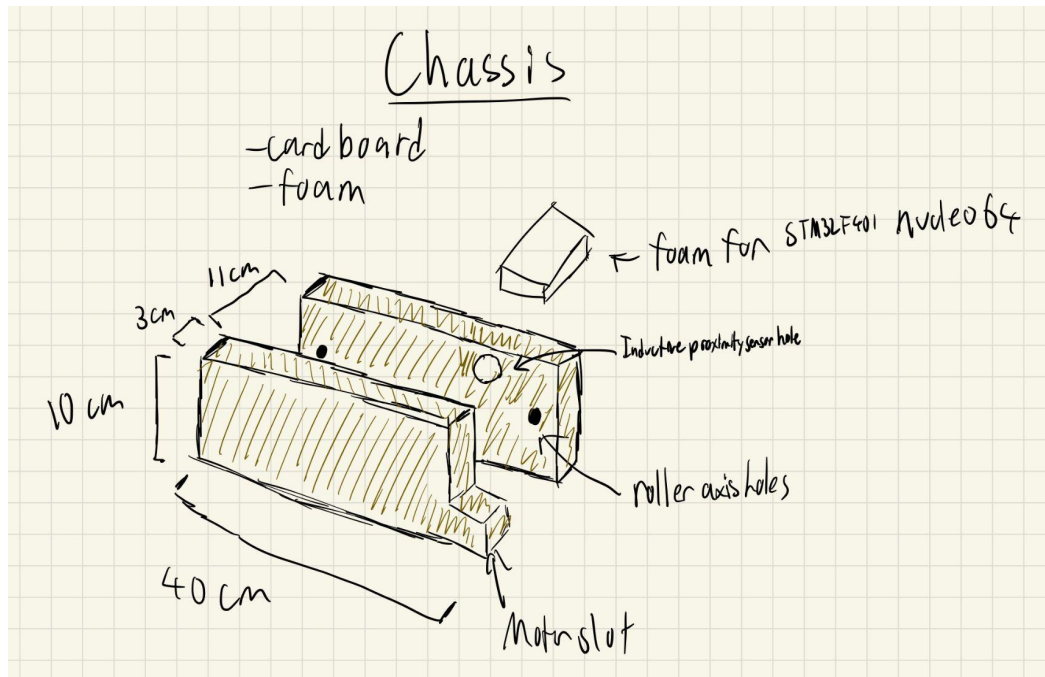 Chassis
-cardboard
-foam
foam for STM32F401 nucleo64
11cm
3cm
Inductive proximity sensor hole
10 cm
roller axis holes
40 cm
Motor slot